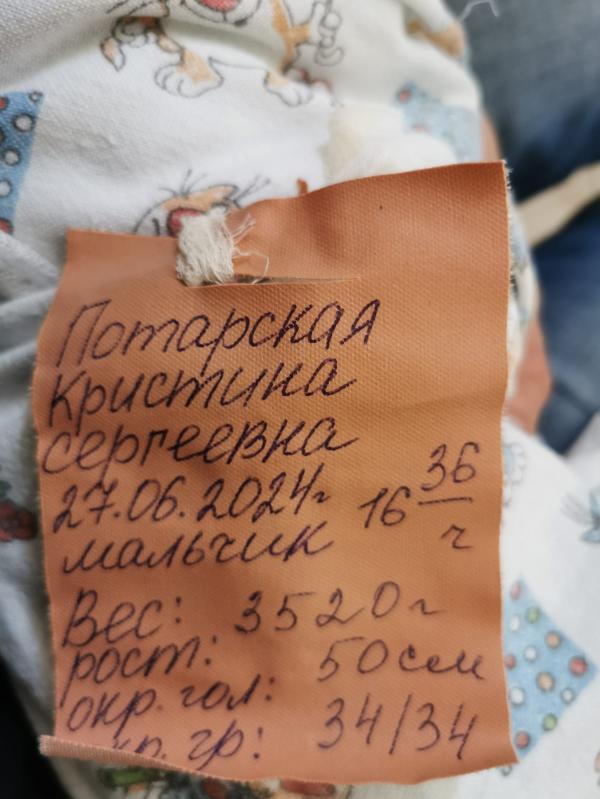 Потарская
Кристина
Сергеевна
27.06.2024г 16 36 ч
мальчик
Вес: 3520г
рост: 50см
окр. гол: 34/34
гр: